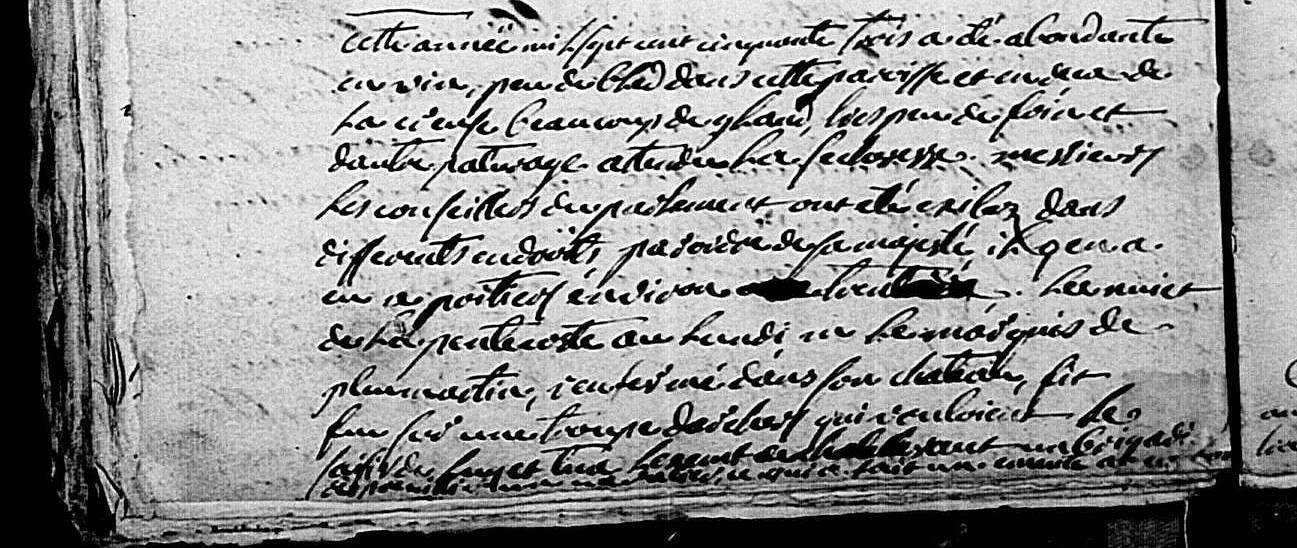 cette année mil sept cent cinquante trois a été abondante
en vin, peu de bled dans cette parisse et en deca de
la creuse beaucoup de gland, tres peu de foin et
dautre paturage attendu la secheresse. messieurs
les conseillers du parlement ont été exilez dans
differents endroits par ordre de sa majesté, il y en a
en a poitiers environ trente. la nuict
de la pentecoste au lundi le marquis de
plumartin, renfermé dans son chateau, fit
feu sur une troupe darchers qui vouloient le
saisir de luy et tua un brigadier